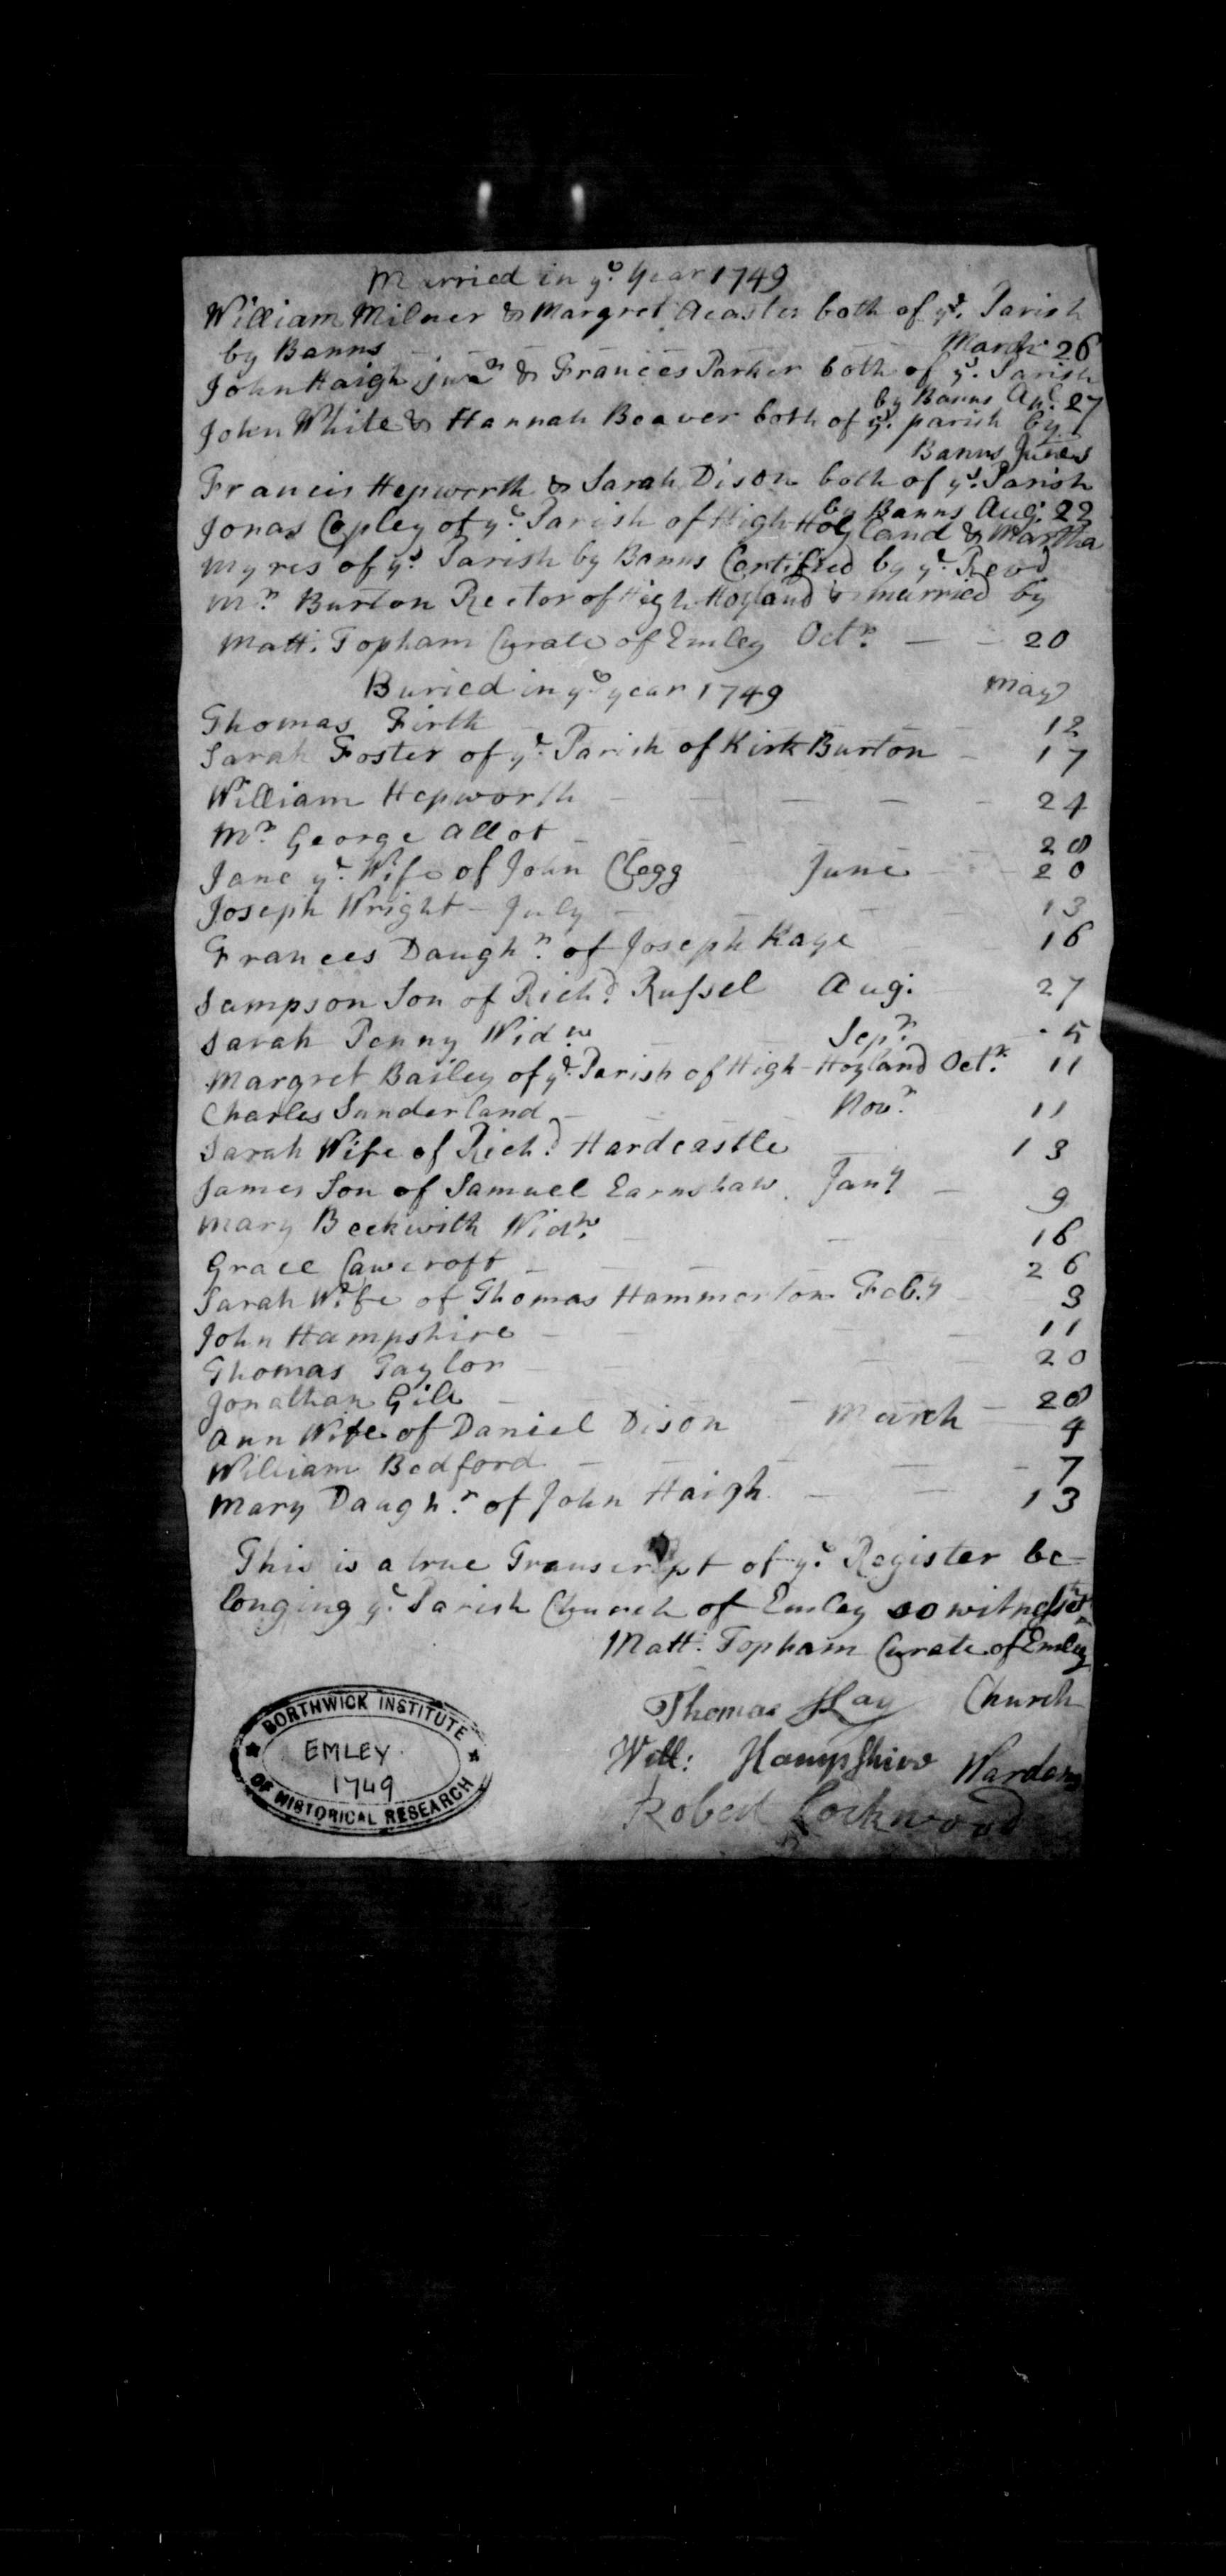 Married in ye. Year 1749
William Milner & Margret Acaster both of ys. Parish
by Banns March 26
John Haigh junr & Frances Parker both of ys. Parish
by Banns Apl. 27
John White & Hannah Beaver both of ys. parish by
Banns June
Francis Hepworth & Sarah Dison both of ys. Parish
by Banns Aug: 22
Jonas Copley of ye. Parish of High Hoyland & Martha
Myres of ys. Parish by Banns Certified by ye. Revd
Mr. Burton Rector of High Hoyland & married by
Matt: Topham Curate of Emley Octr. — - 20
Buried in ye year 1749 May
Thomas Firth 12
Sarah Foster of ye. Parish of Kirk Burton - 17
William Hepworth - - - - - 24
Mr. George Allot - - - - 28
Jane ye. Wife of John Clegg June - - 20
Joseph Wright - July - - - - 13
Frances Daughr. of Joseph Kaye 16
Sampson Son of Richd. Rufsel Aug: 27
Sarah Penny Widw Sepr. - 5
Margret Bailey of ye. Parish of High-Hoyland Octr. 11
Charles Sunderland - - - Novr. 11
Sarah Wife of Richd. Hardcastle - 13
James Son of Samuel Earnshaw. Jany - 9
Mary Beckwith Widw. - - 16
Grace Cawcroft - - - - 26
Sarah Wife of Thomas Hammerton Feb.y - 3
John Hampshire - - - - 11
Thomas Taylor - - - 20
Jonathan Gill - - - - 28
Ann Wife of Daniel Dison March - 4
William Bedford - - - - - 7
Mary Daughr. of John Haigh. - - 13
This is a true Transcript of ye. Register be-
longing ye. Parish Church of Emley so witnefseth
Matt: Topham Curate of Emley
Thomas Hay Church
Will: Hampshire Wardens
Robert Lockwood
BORTHWICK INSTITUTE
EMLEY.
1749
OF HISTORICAL RESEARCH